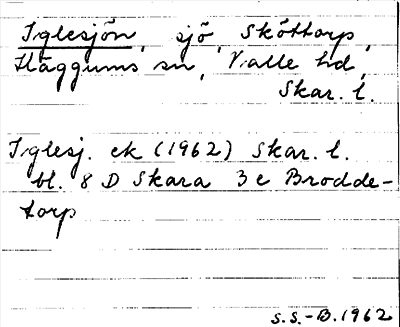 Iglesjön, sjö, Sköttorp,
Häggums sn, Valle hd,
Skar. l.
Iglesj. ek (1962) Skar. l.
bl. 8 D Skara 3 c Brodde-
torp
S.S.-B. 1962